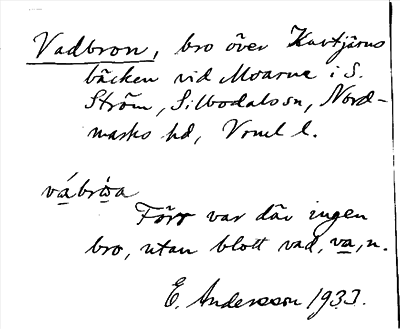 Vadbron, bro över Kartjärns
bäcken vid Moarne i S.
Ström, Silbodals sn, Nord-
marks hd, Vrml l.
vábrωa
Förr var där ingen
bro, utan blott vad, va, n.
E. Andersson 1933.